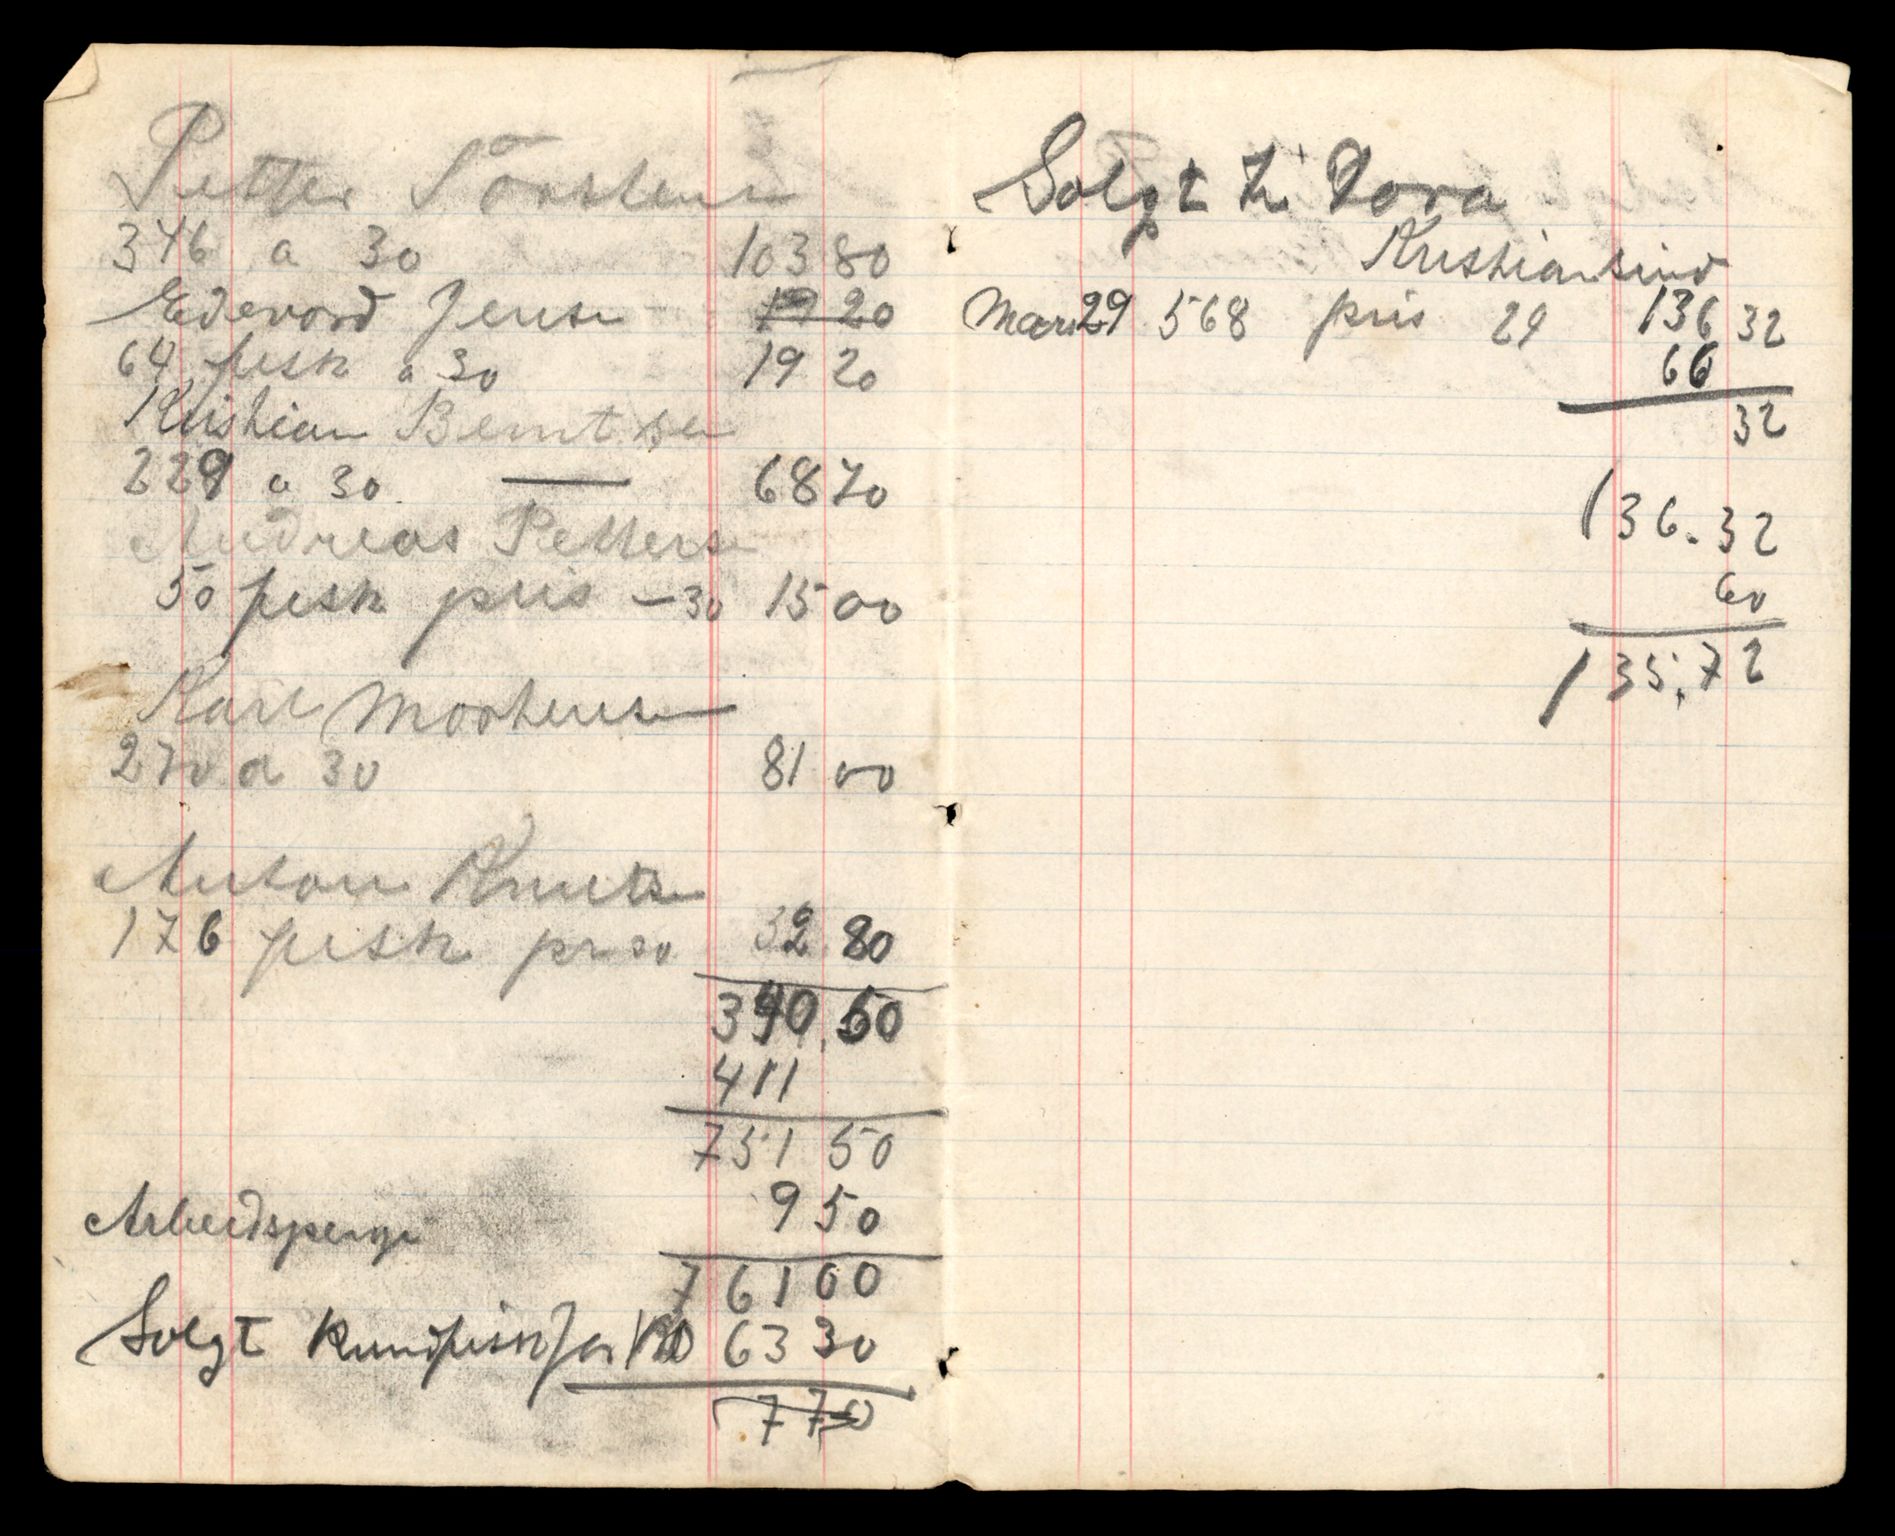 Petter Torsteins
346 a 30 103 80
Edevard Jens 19 20
64 fisk a 30 19 20
Kristian Berntsen
229 a 30 — 68 70
Andreas Petters
50 fisk pris — 30 15 00
Karl Mortens
270 a 30 81 00
Anton Knuts
176 fisk pr 30 32 80
340.50
411
751 50
Arbeidspenge 9 50
761 00
Solgt Rundfisk 63 30
770
Solgt ti Dora
Kristiansund
Mars 29 568 pris 24 136 32
60
32
136.32
60
135,72